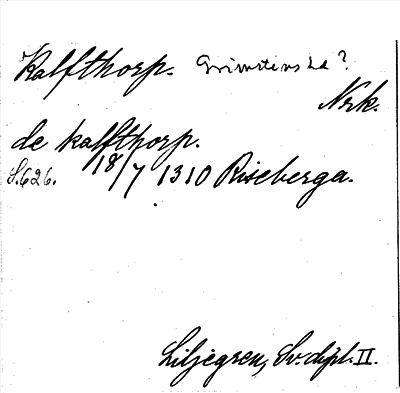 Kalfthorp. Grimstens hd?
Nrk.
de kalfthorp.
S. 626. 18/7 1310 Riseberga.
Liljegren, Sv. dipl. II.